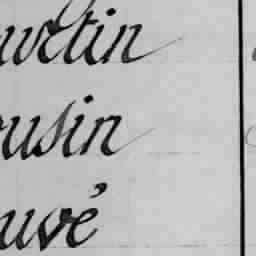 uvetin
ousin
uvé